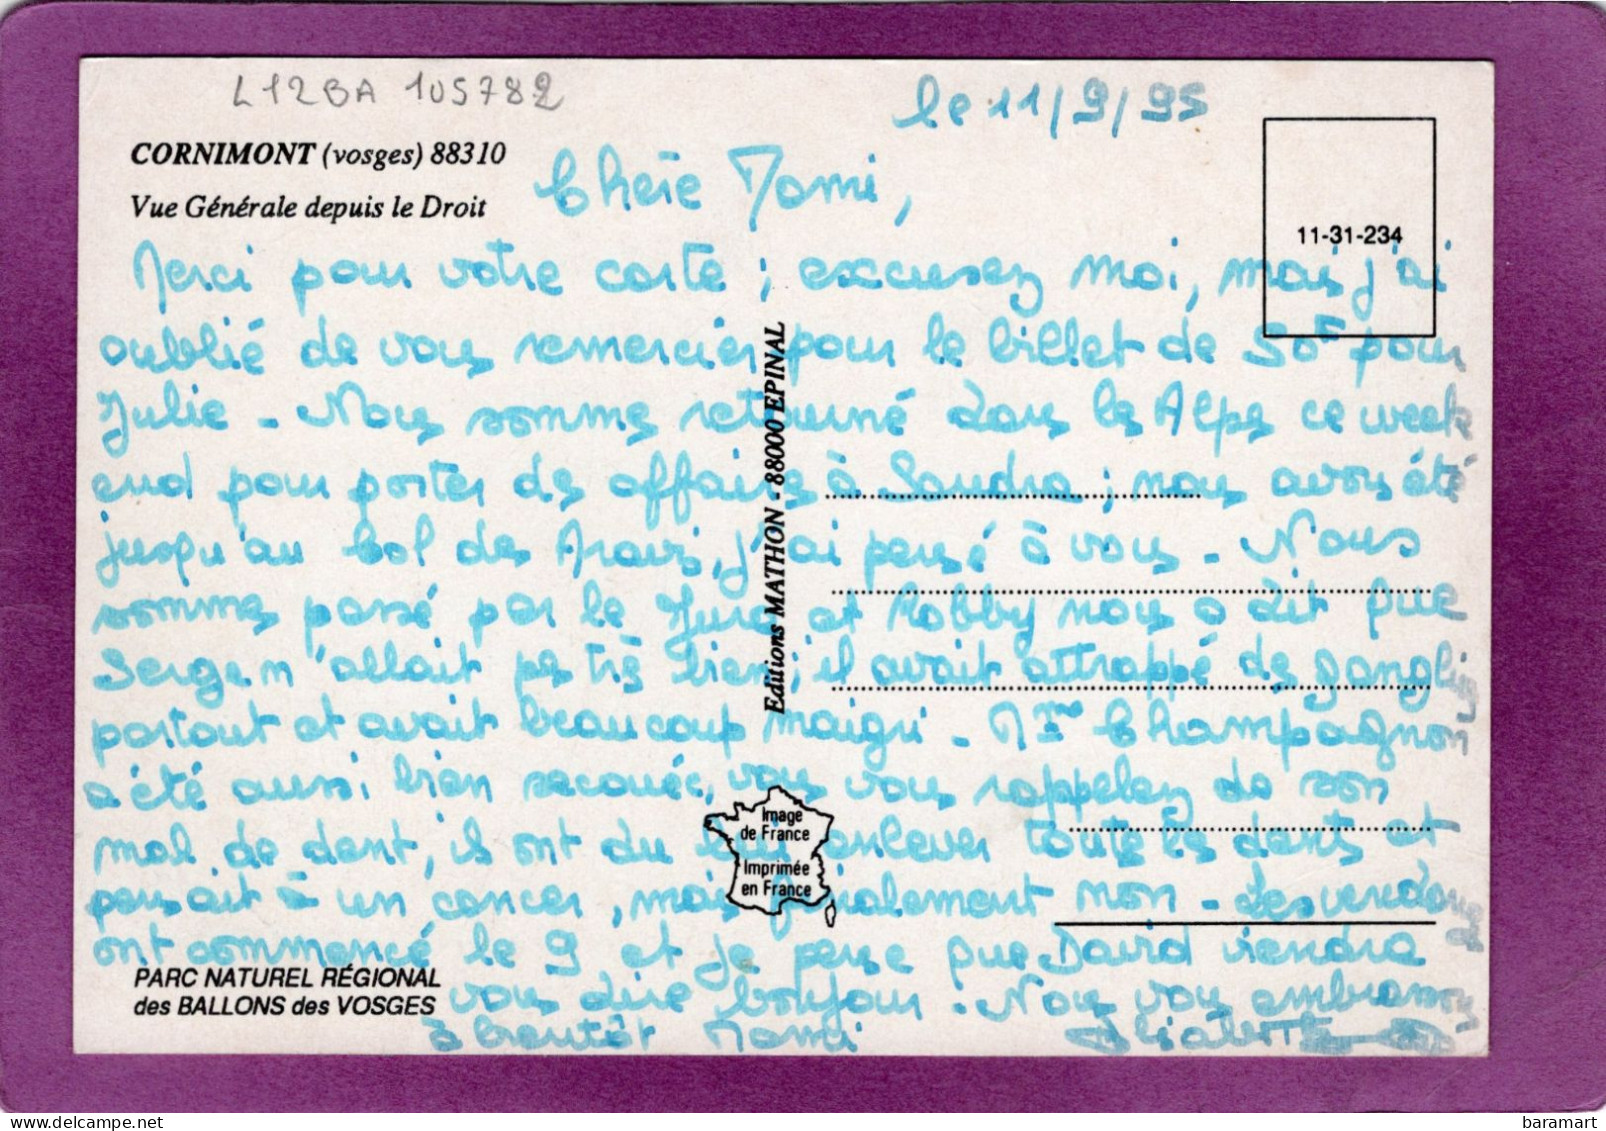 L12BA 105782
le 11/9/95
CORNIMONT (vosges) 88310
Vue Générale depuis le Droit
Chère Mami,
11-31-234
Merci pour votre carte ; excusez moi, mais j'ai
oublié de vous remercier pour le billet de 50F pour
Julie - Nous somme retourné dans les Alpes ce week
end pour porter des affaires à Sandra ; nous avons été
jusqu'au col des Aravis, j'ai pensé à vous - Nous
sommes passé par le Jura et Robby nous a dit que
Serge n'allait pas très bien ; il avait attrappé des ganglions
partout et avait beaucoup maigri - Mme Champagnon
a été aussi bien secouée, vous vous rappelez de son
mal de dent, ils ont du lui enlever toutes les dents et
pensait à un cancer, mais finalement non - Les vendanges
ont commencé le 9 et je pense que David viendra
vous dire bonjour - Nous vous embrassons
à bientôt Mami Elisabeth
Editions MATHON - 88000 EPINAL
Image
de France
Imprimée
en France
PARC NATUREL RÉGIONAL
des BALLONS des VOSGES
https://www.delcampe.net
baramart